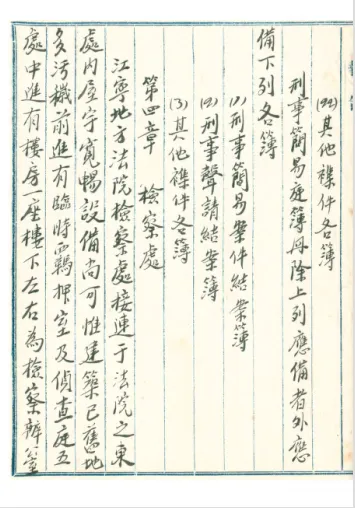 其他雜件各簿
刑事簡易庭簿冊除上列應備者外應
備下列各簿
(1)刑事簡易案件結案簿
(2)刑事聲請結案簿
(3)其他雜件各簿
第四章 檢察處
江寧地方法院檢察處接連于法院之東
處内屋宇寬暢設備尚可惟建築已舊地
多污穢前進有臨時羈押室及偵查庭五
處中進有樓房一座樓下左右為檢察辦